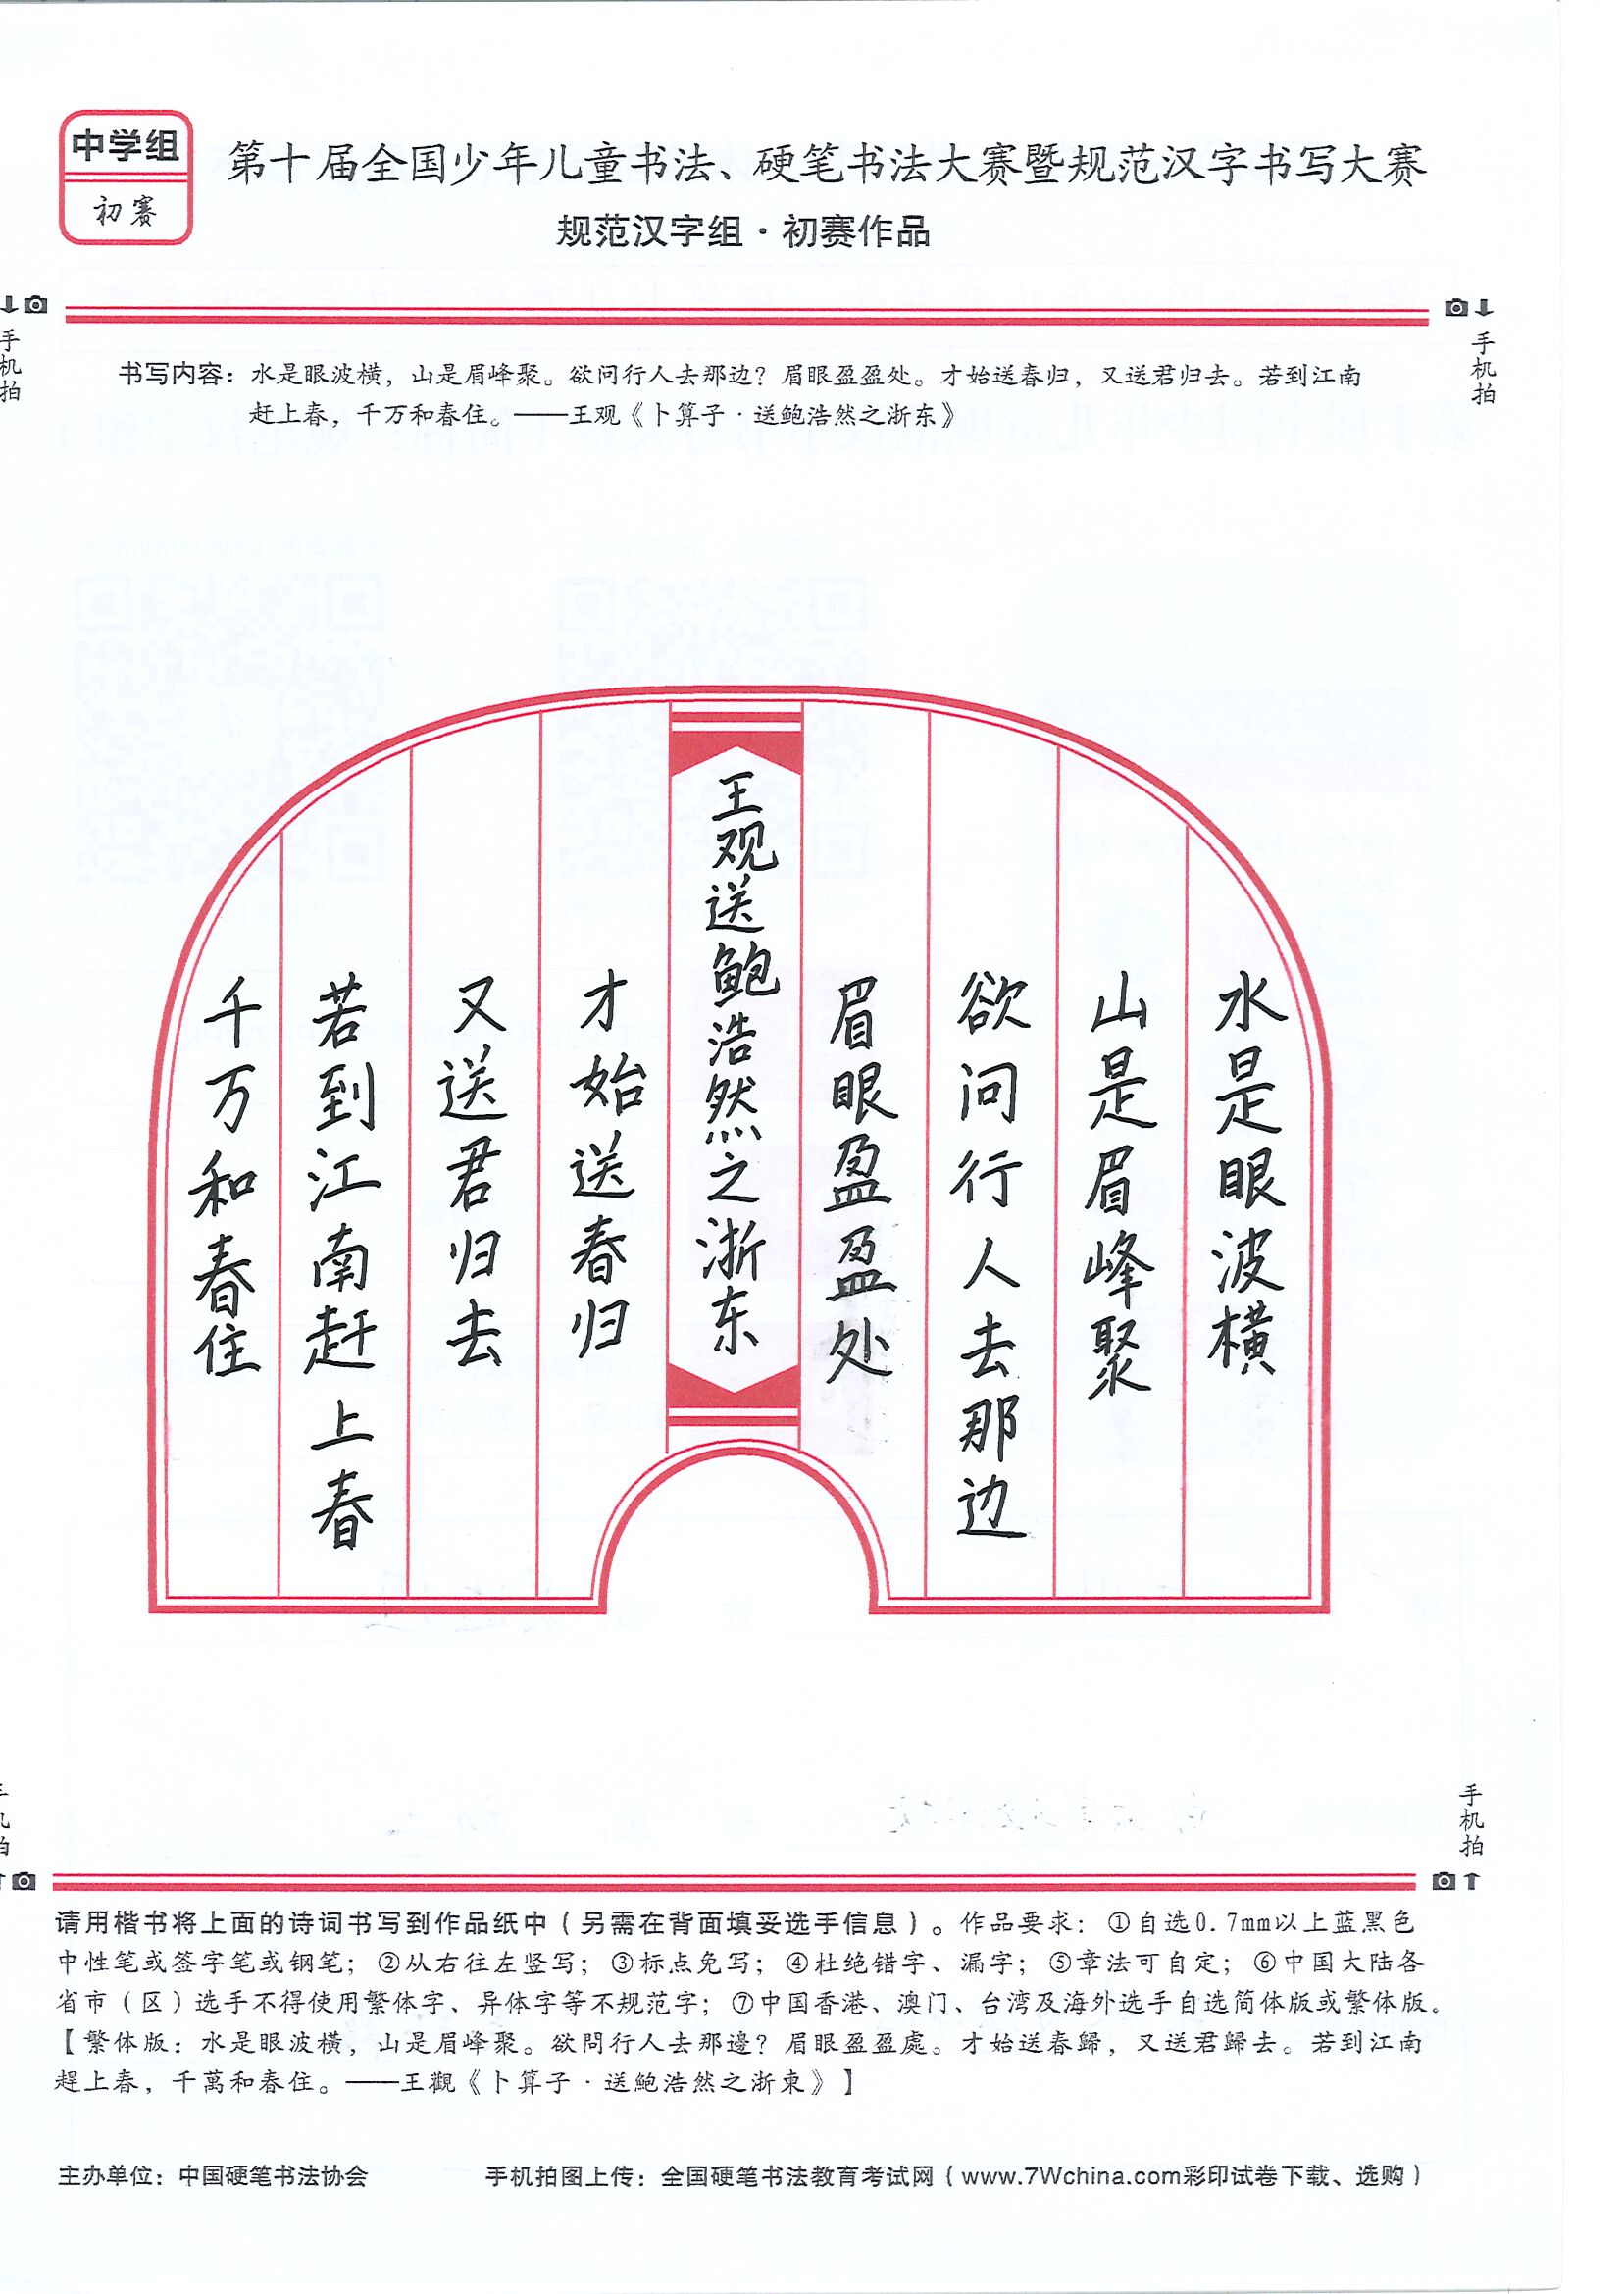 中学组
初赛
第十届全国少年儿童书法、硬笔书法大赛暨规范汉字书写大赛
规范汉字组·初赛作品
手机拍
手机拍
书写内容：水是眼波横，山是眉峰聚。欲问行人去那边？眉眼盈盈处。才始送春归，又送君归去。若到江南
赶上春，千万和春住。——王观《卜算子·送鲍浩然之浙东》
水是眼波横
山是眉峰聚
欲问行人去那边
眉眼盈盈处
王观送鲍浩然之浙东
才始送春归
又送君归去
若到江南赶上春
千万和春住
手机拍
手机拍
请用楷书将上面的诗词书写到作品纸中（另需在背面填妥选手信息）。作品要求：①自选0.7mm以上蓝黑色
中性笔或签字笔或钢笔；②从右往左竖写；③标点免写；④杜绝错字、漏字；⑤章法可自定；⑥中国大陆各
省市（区）选手不得使用繁体字、异体字等不规范字；⑦中国香港、澳门、台湾及海外选手自选简体版或繁体版。
【繁体版：水是眼波橫，山是眉峰聚。欲問行人去那邊？眉眼盈盈處。才始送春歸，又送君歸去。若到江南
趕上春，千萬和春住。——王觀《卜算子·送鮑浩然之浙東》】
主办单位：中国硬笔书法协会
手机拍图上传：全国硬笔书法教育考试网（www.7Wchina.com彩印试卷下载、选购）